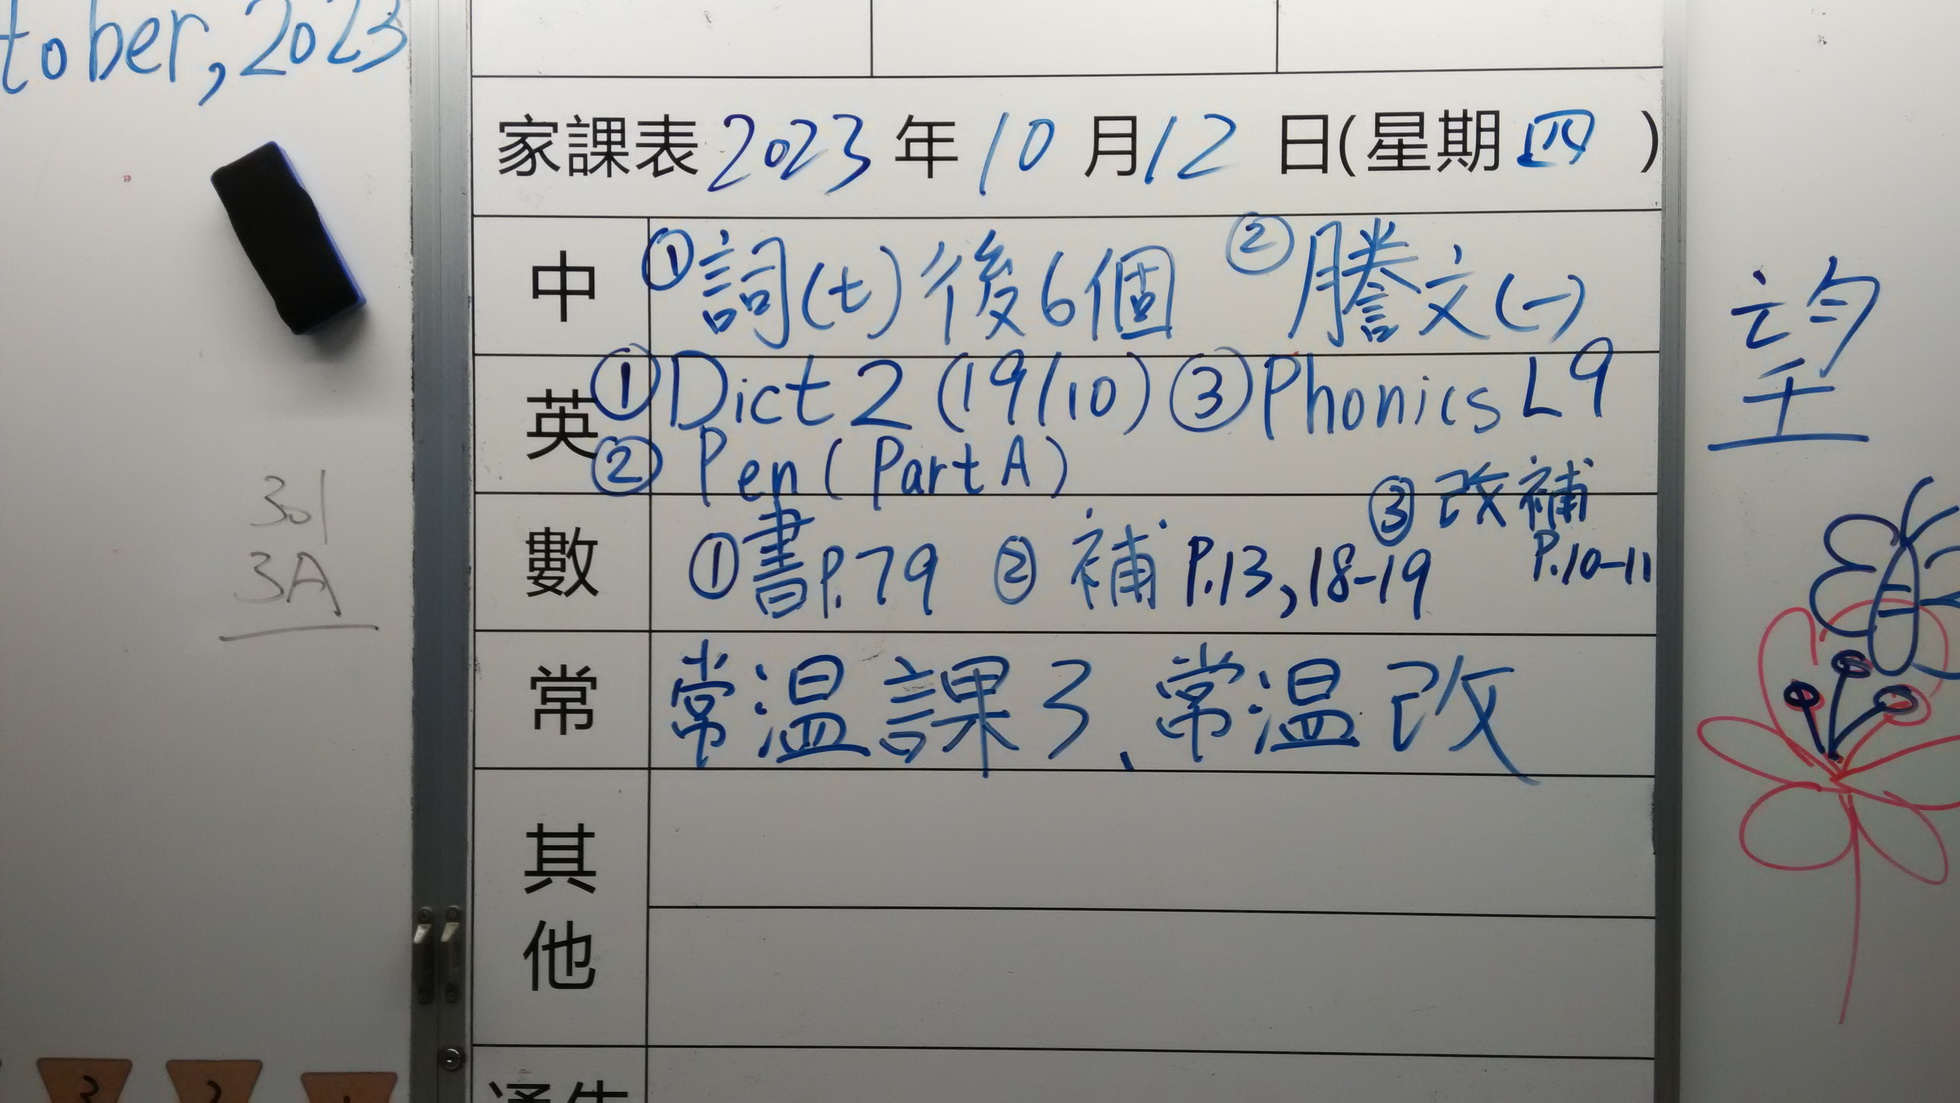 tober, 2023
家課表 2023 年 10 月 12 日(星期 四 )
中 ①詞(七)後6個 ②謄文(一)
英 ①Dict 2 (19/10) ③Phonics L9
②Pen (Part A)
數 ①書P.79 ②補P.13,18-19 ③改補P.10-11
常 常温課3、常温改
其他
望
301
3A
3 2 1